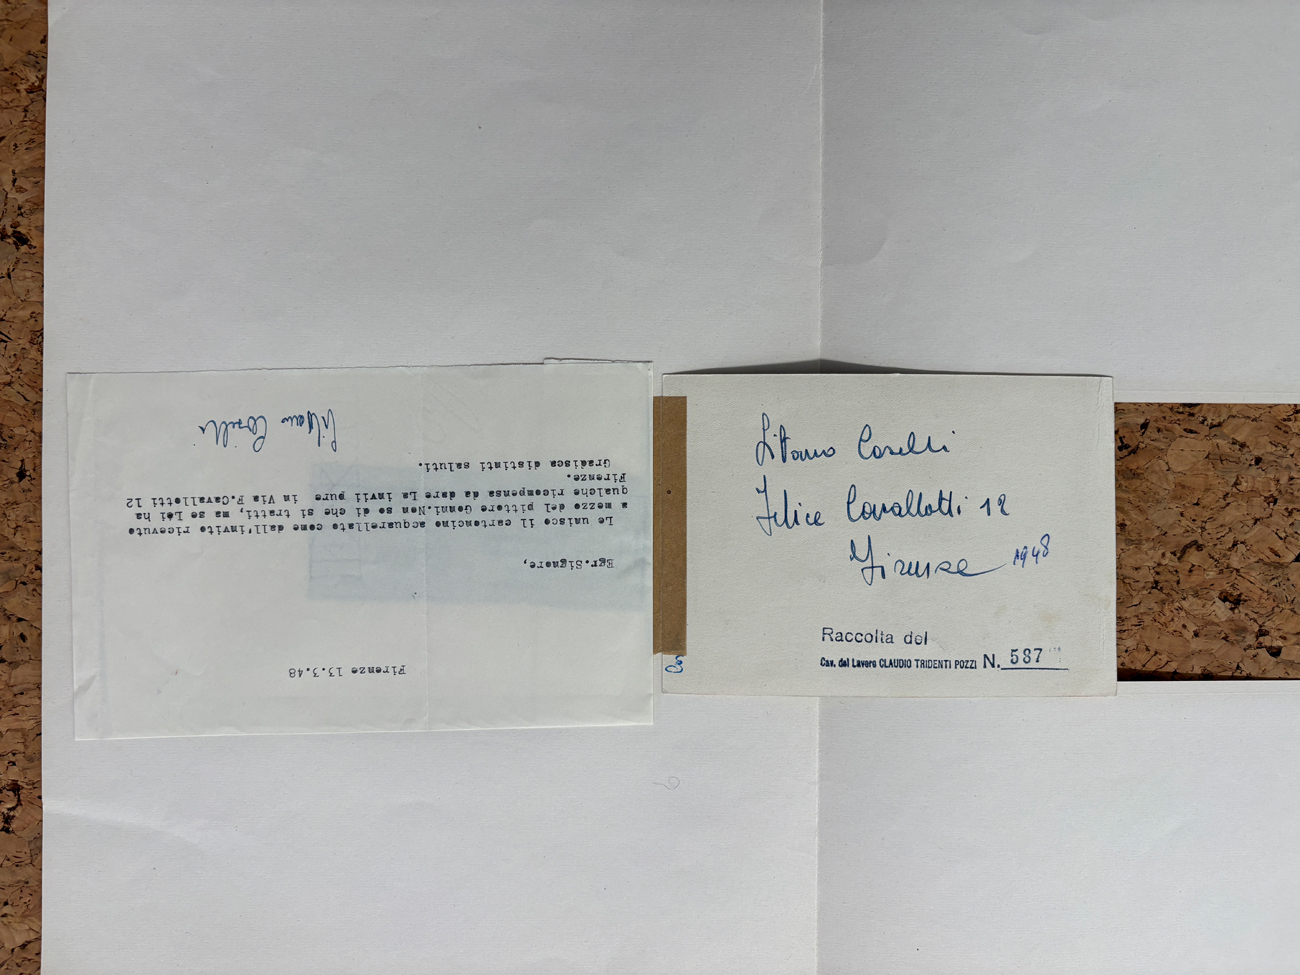 Firenze 13.3.48
Egr.Signore,
Le unisco il cartoncino acquarellato come dall'invito ricevuto
a mezzo del pittore Gonni.Non so di che si tratti, ma se Lei ha
qualche ricompensa da dare La invii pure in Via F.Cavallotti 12
Firenze.
Gradisca distinti saluti.
Caselli
Caselli
Felice Cavallotti 12
Firenze 1948
Raccolta del
Cav. del Lavoro CLAUDIO TRIDENTI POZZI N. 587